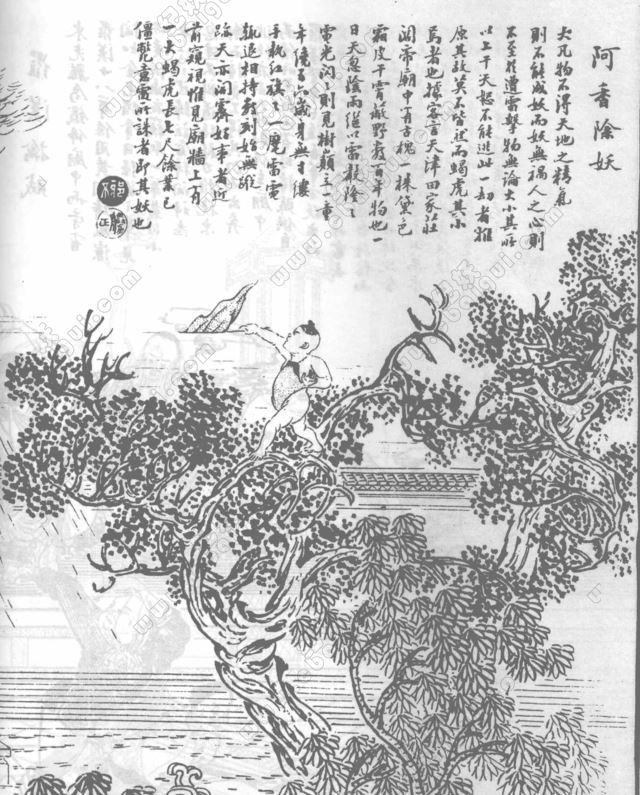 阿香除妖
大凡物不得天地之精氣
則不能成妖而妖無禍人之心則
不至於遭雷擊物無論大小其所
以上干天怒不能逃此一劫者推
原其故莫不皆然而蝎虎其小
焉者也據客言天津田家莊
關帝廟中有古槐一株黛色
霜皮干霄蔽野數百年物也一
日天忽陰雨繼以雷聲隆々
電光閃々則見樹顛立一童
年僅五六歲身無寸縷
手執紅旗之一麾雷電
輒退相持數刻始無蹤
跡天亦開霽好事者近
前窺視惟見廟牆上有
一大蝎虎長七尺餘業已
僵斃意雷所誅者即其妖也